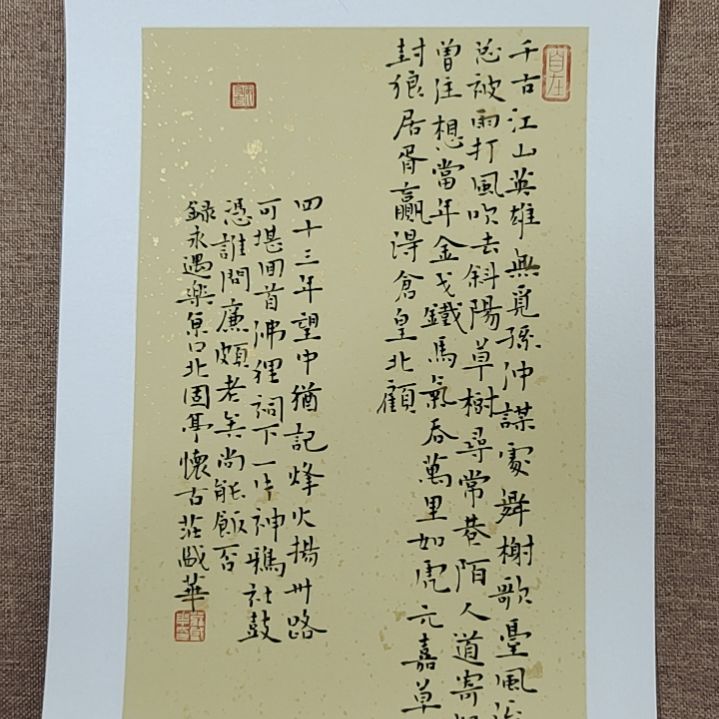 自在
千古江山英雄無覓孫仲謀處舞榭歌臺風
总被雨打風吹去斜陽草樹尋常巷陌人道寄
曾住想當年金戈鐵馬氣吞萬里如虎元嘉草
封狼居胥贏得倉皇北顧
四十三年望中猶記烽火揚州路
可堪回首沸狸祠下一片神鴉社鼓
憑誰問廉頗老矣尚能飯否
録永遇樂京口北固亭懷古